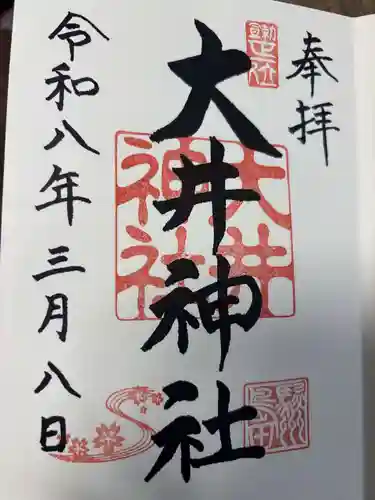 奉拝
大井神社
令和八年三月八日
大井神社